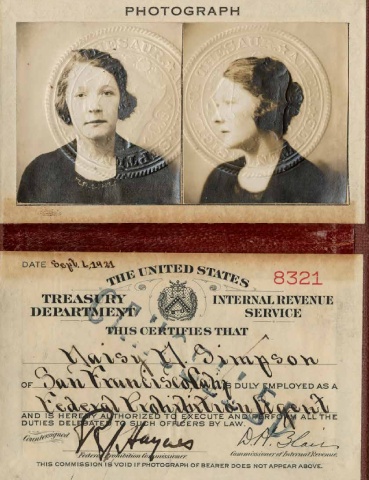 PHOTOGRAPH
DATE Sept. 1, 1921
THE UNITED STATES
8321
TREASURY DEPARTMENT
INTERNAL REVENUE SERVICE
THIS CERTIFIES THAT
Daisy D. Simpson
OF San Francisco Cal. IS DULY EMPLOYED AS A
Federal Prohibition Agent
AND IS HEREBY AUTHORIZED TO EXECUTE AND PERFORM ALL THE
DUTIES DELEGATED TO SUCH OFFICERS BY LAW.
Countersigned
Haynes
D. H. Blair
Federal Prohibition Commissioner
Commissioner of Internal Revenue.
THIS COMMISSION IS VOID IF PHOTOGRAPH OF BEARER DOES NOT APPEAR ABOVE.